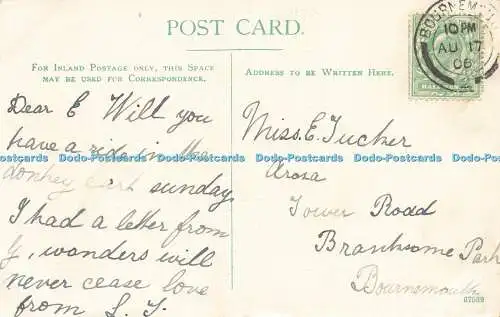 POST CARD.
FOR INLAND POSTAGE ONLY, THIS SPACE
MAY BE USED FOR CORRESPONDENCE.
Dear E Will you
have a ride in the
donkey cart sunday
I had a letter from
G, wonders will
never cease love
from L. T.
ADDRESS TO BE WRITTEN HERE.
Miss. E. Tucker
Arosa
Tower Road
Branksome Park
Bournemouth
67089
BOURNEMOUTH
10 PM
AU 17
06
Dodo-Postcards Dodo-Postcards Dodo-Postcards Dodo-Postcards Dodo-Postcards Dodo-Postcards Dodo-Postcards